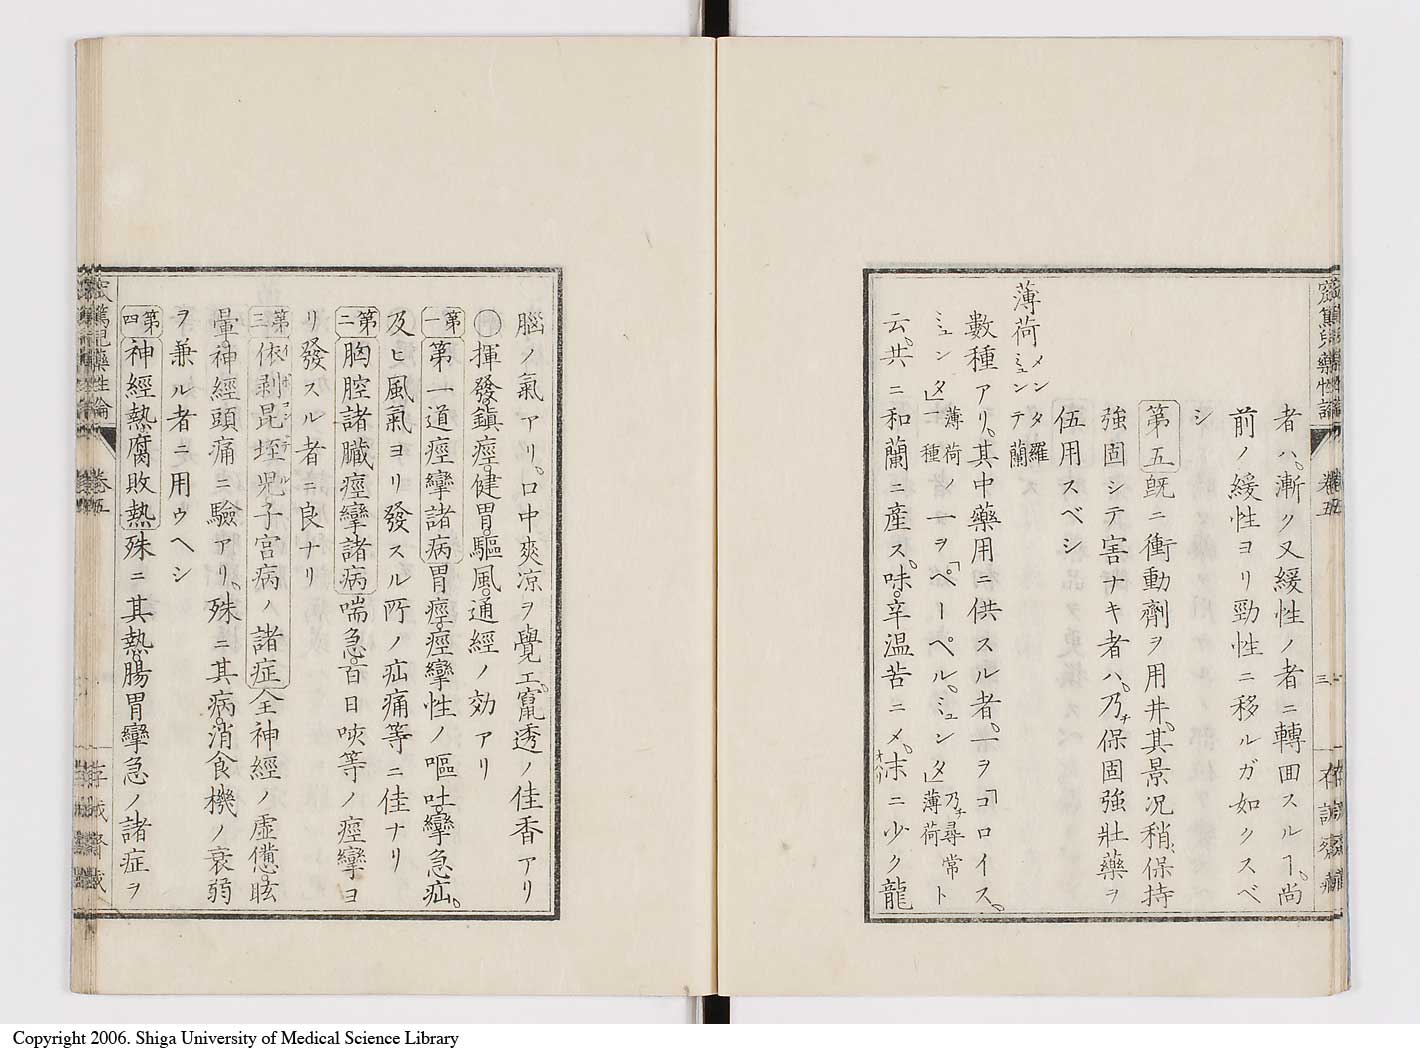 者ハ漸ク又緩性ノ者ニ轉囬スルヿ尚
前ノ緩性ヨリ勁性ニ移ルガ如クスベ
シ
第五 既ニ衝動劑ヲ用井其景况稍保持
強固シテ害ナキ者ハ乃チ保固強壯藥ヲ
伍用スベシ
薄荷 メンタ羅 ミュンテ蘭
數種アリ其中藥用ニ供スル者一ヲ「コロイス
ミュンタ」薄荷ノ一種 一ヲ「ペーペルミュンタ」乃チ尋常ノ薄荷ト
云共ニ和蘭ニ産ス味辛温苦ニメ末ニ少ク龍
腦ノ氣アリ口中爽凉ヲ覺エ竄透ノ佳香アリ
〇揮發鎮痙健胃驅風通經ノ効アリ
第一 第一道痙攣諸病 胃痙痙攣性ノ嘔吐攣急疝
及ヒ風氣ヨリ發スル所ノ疝痛等ニ佳ナリ
第二 胸腔諸臓痙攣諸病 喘急百日咳等ノ痙攣ヨ
リ發スル者ニ良ナリ
第三 依剥昆垤児子宮病ノ諸症 全神經ノ虚憊眩
暈神經頭痛ニ驗アリ殊ニ其病消食機ノ衰弱
ヲ兼ル者ニ用ウヘシ
第四 神經熱腐敗熱 殊ニ其熱腸胃攣急ノ諸症ヲ